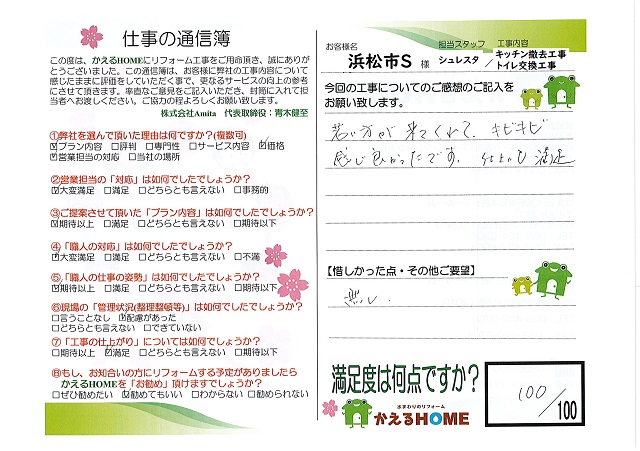 仕事の通信簿
この度は、かえるHOMEにリフォーム工事をご用命頂き、誠にありがとうございました。この通信簿は、お客様に弊社の工事内容について感じたままに評価をしていただく事で、更なるサービスの向上の参考にさせて頂きます。率直なご意見をご記入いただき、封筒に入れて担当者へお渡しください。ご協力の程よろしくお願い致します。
株式会社Amita 代表取締役：青木健至
①弊社を選んで頂いた理由は何ですか?(複数可)
☑プラン内容 □評判 □専門性 □サービス内容 ☑価格
☑営業担当の対応 □当社の場所
②営業担当の「対応」は如何でしたでしょうか?
☑大変満足 □満足 □どちらとも言えない □事務的
③ご提案させて頂いた「プラン内容」は如何でしたでしょうか?
☑期待以上 □満足 □どちらとも言えない □期待以下
④「職人の対応」は如何でしたでしょうか?
☑大変満足 □満足 □どちらとも言えない □不満
⑤「職人の仕事の姿勢」は如何でしたでしょうか?
☑期待以上 □満足 □どちらとも言えない □期待以下
⑥現場の「管理状況(整理整頓等)」は如何でしたでしょうか?
□言うことなし ☑配慮があった
□どちらとも言えない □できていない
⑦「工事の仕上がり」については如何でしょうか?
□期待以上 ☑満足 □どちらとも言えない □期待以下
⑧もし、お知合いの方にリフォームする予定がありましたら
かえるHOMEを「お勧め」頂けますでしょうか?
□ぜひ勧めたい ☑勧めてもいい □わからない □勧められない
お客様名 担当スタッフ 工事内容
浜松市S 様 シュレスタ / キッチン撤去工事
トイレ交換工事
今回の工事についてのご感想のご記入を
お願い致します。
若い方が来てくれて、キビキビ
感じ良かったです。仕上りも満足
【惜しかった点・その他ご要望】
無し
満足度は何点ですか?
100/100
水まわりのリフォーム
かえるHOME